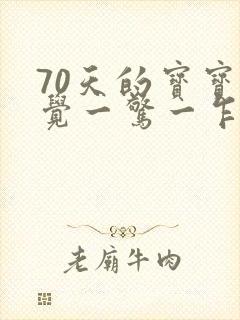 70天的寶寶
覺一驚一乍
老廟牛肉